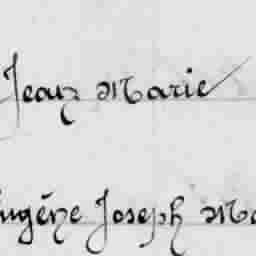 Jean Marie
Eugène Joseph Ma